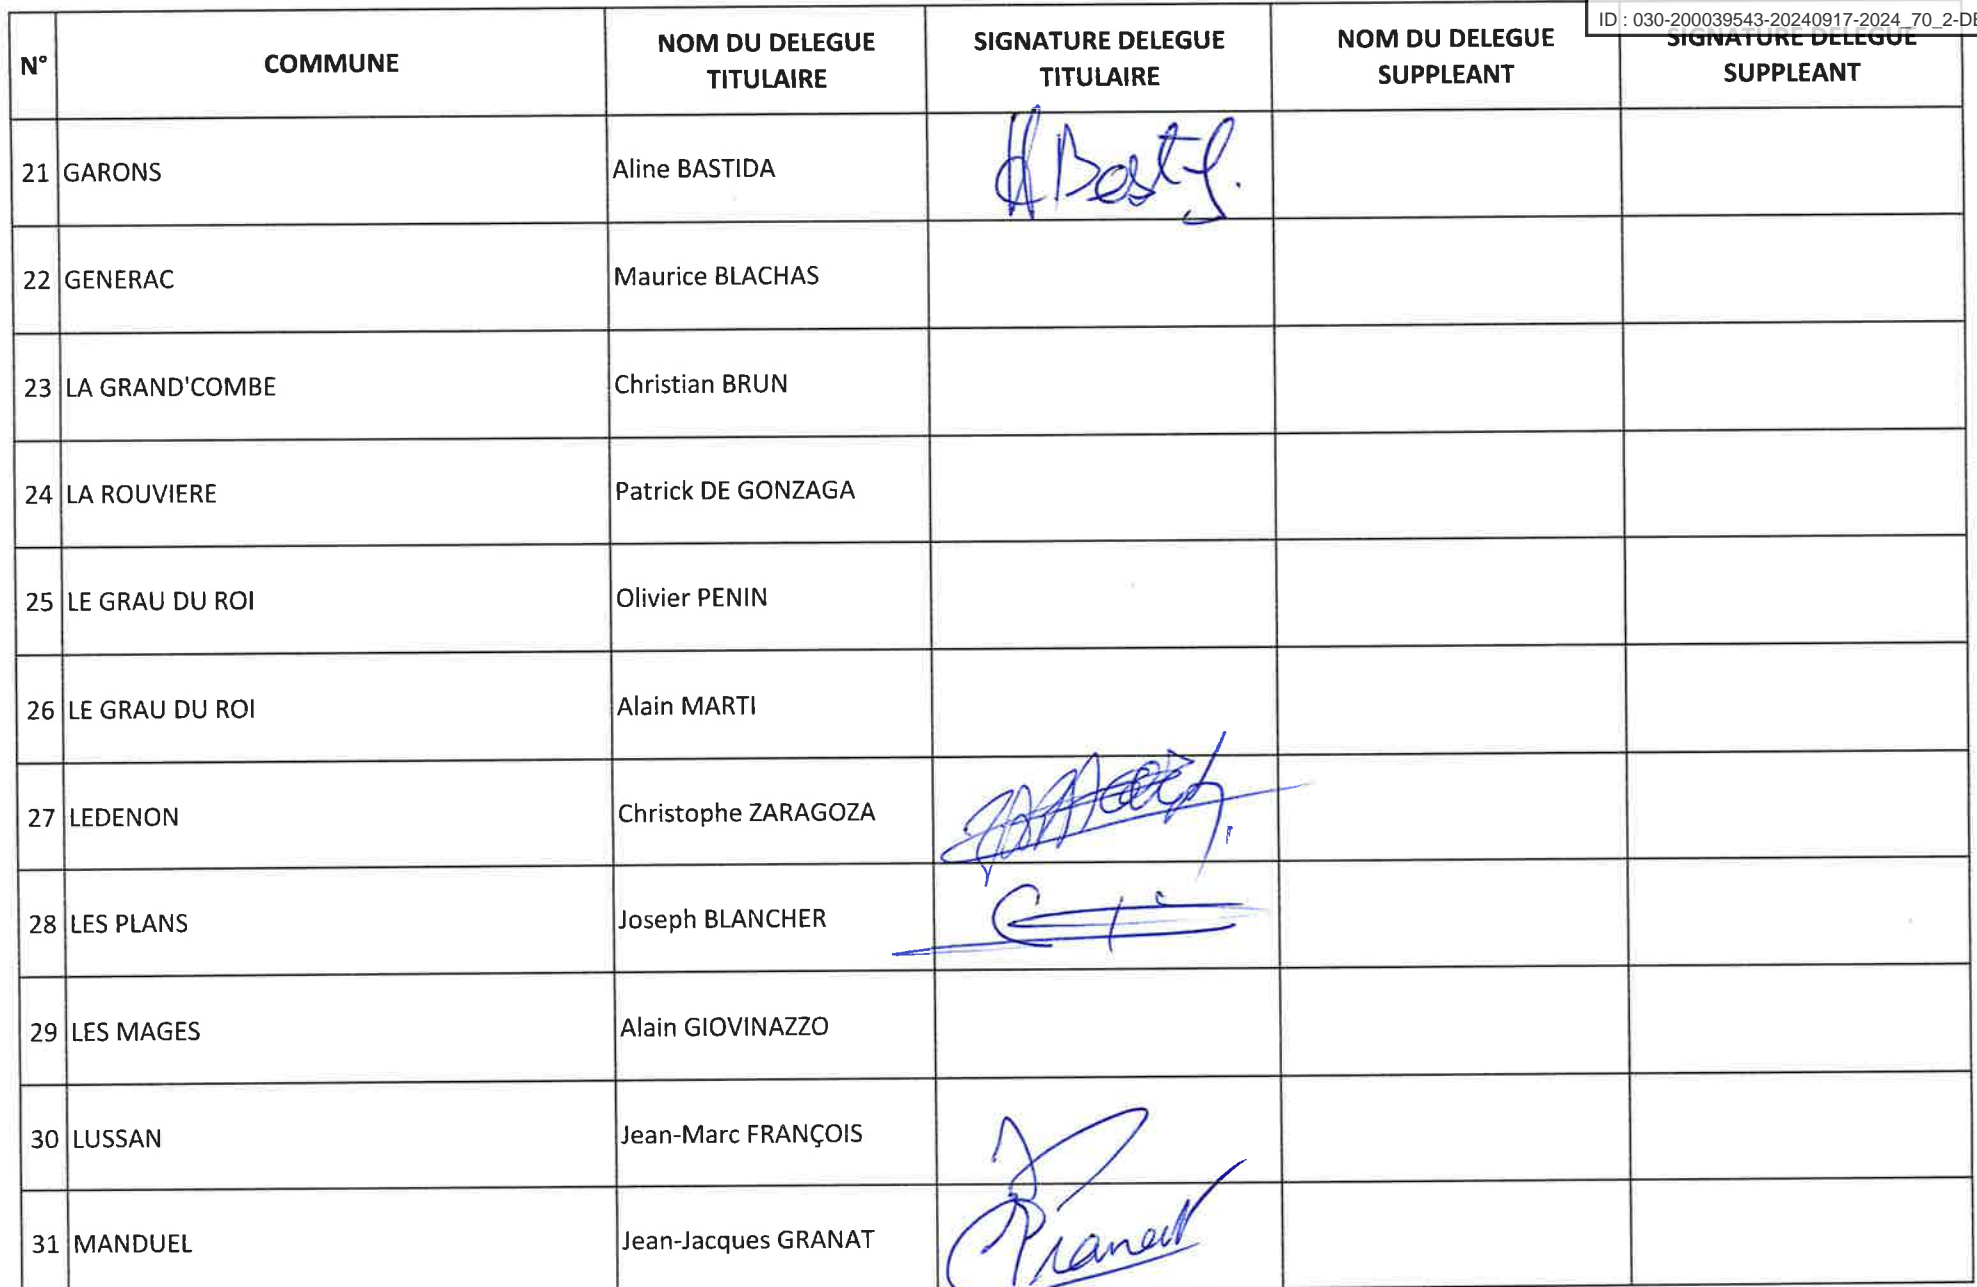 ID : 030-200039543-20240917-2024_70_2-DE
N° COMMUNE NOM DU DELEGUE TITULAIRE SIGNATURE DELEGUE TITULAIRE NOM DU DELEGUE SUPPLEANT SIGNATURE DELEGUE SUPPLEANT
21 GARONS Aline BASTIDA
22 GENERAC Maurice BLACHAS
23 LA GRAND'COMBE Christian BRUN
24 LA ROUVIERE Patrick DE GONZAGA
25 LE GRAU DU ROI Olivier PENIN
26 LE GRAU DU ROI Alain MARTI
27 LEDENON Christophe ZARAGOZA
28 LES PLANS Joseph BLANCHER
29 LES MAGES Alain GIOVINAZZO
30 LUSSAN Jean-Marc FRANÇOIS
31 MANDUEL Jean-Jacques GRANAT